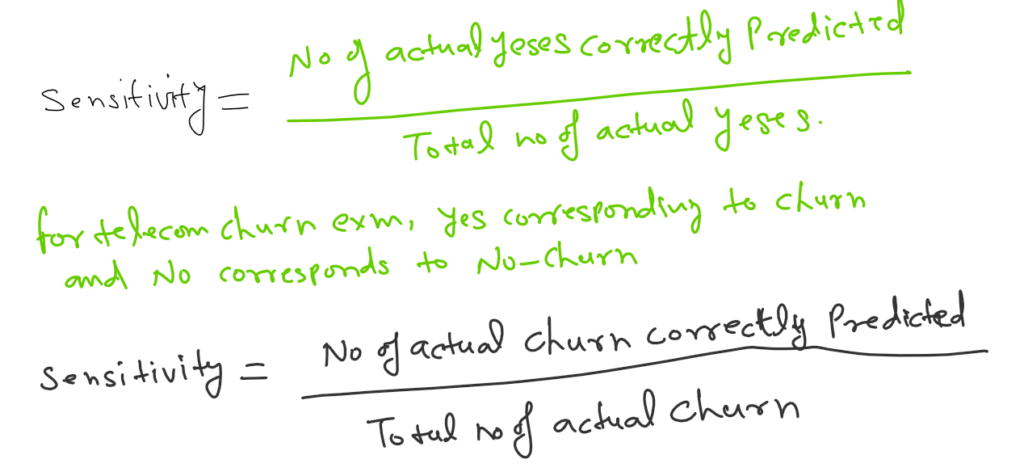 Sensitivity = No of actual yeses correctly Predicted
Total no of actual yeses.
for telecom churn exm, yes corresponding to churn
and No corresponds to No-churn
Sensitivity = No of actual churn correctly Predicted
Total no of actual churn